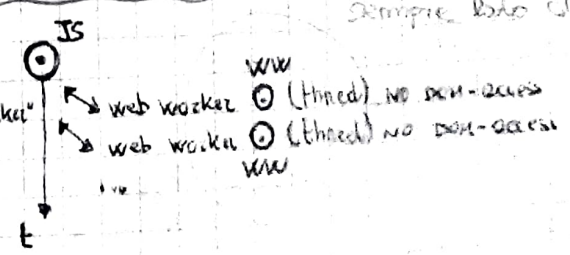 sempre lato
JS
WW
web worker (thread) NO DOM-access
web worker (thread) NO DOM-access
WW
t